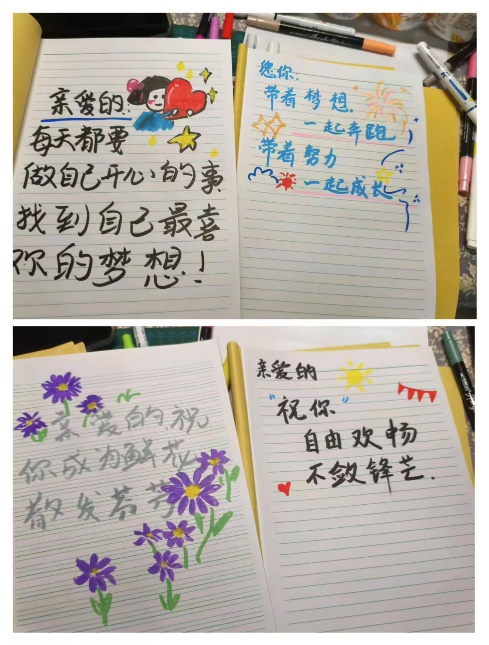 亲爱的:
每天都要
做自己开心的事
找到自己最喜
欢的梦想!
您你:
带着梦想,
一起奔跑
带着努力
一起成长
亲爱的祝
你成为鲜花
散发芬芳
亲爱的
"祝你"
自由欢畅
不敛锋芒.